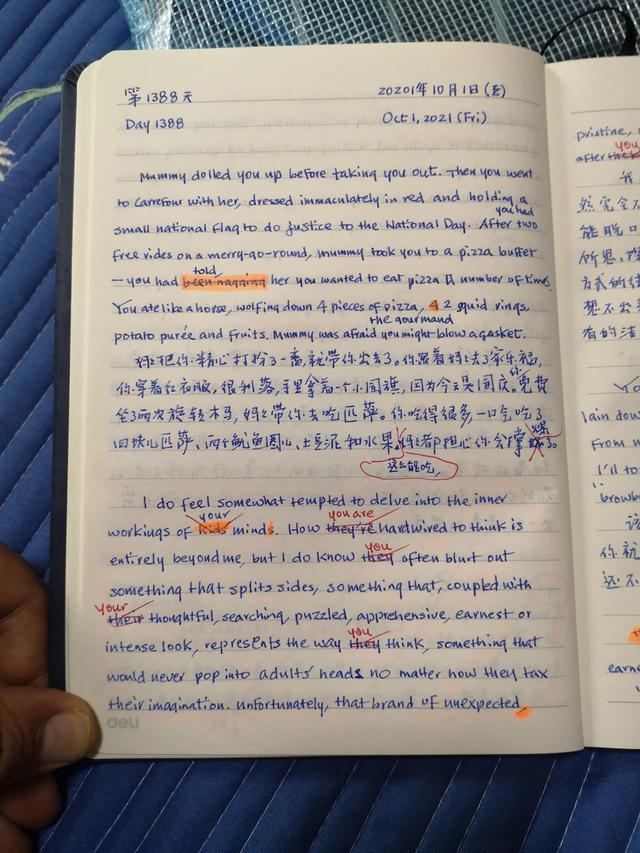 第1388天 20201年10月1日(五)
Day 1388 Oct 1, 2021 (Fri)
Mummy dolled you up before taking you out. Then you went
to Carrefour with her, dressed immaculately in red and holding a
you had
small national flag to do justice to the National Day. After two
free rides on a merry-go-round, mummy took you to a pizza buffet
told
— you had been nagging her you wanted to eat pizza a number of times.
You ate like a horse, wolfing down 4 pieces of pizza, 4 2 squid rings,
the gourmand
potato purée and fruits. Mummy was afraid you might blow a gasket.
妈妈把你精心打扮了一番,就带你出去了。你跟着妈妈去了家乐福,
你
你穿着红衣服,很利落,手里拿着一个小国旗,因为今天是国庆。免费
坐了两次旋转木马,妈妈带你去吃匹萨。你吃得很多,一口气吃了
爆
四块匹萨、两个鱿鱼圈、土豆泥和水果。妈妈都担心你会撑了。
这么能吃,
I do feel somewhat tempted to delve into the inner
your you are
workings of kids minds. How they're hardwired to think is
you
entirely beyond me, but I do know they often blurt out
something that splits sides, something that, coupled with
your
their thoughtful, searching, puzzled, apprehensive, earnest or
you
intense look, represents the way they think, something that
would never pop into adults' heads no matter how they tax
their imagination. Unfortunately, that brand of unexpected
deli
pristine,
you
after
我
然完全不
能脱口
所思,
方式的
想不出
有的
You
lain down
From
I'll to
browb
该
你就
远不
earne